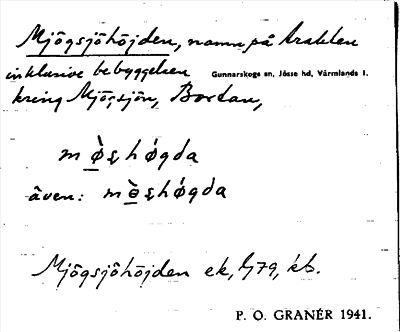 Mjögsjöhöjden, namn på trakten
inklusive bebyggelsen Gunnarskogs sn, Jösse hd, Värmlands l.
kring Mjögsjön, Bortan,
även:
Mjögsjöhöjden ek, kb.
P. O. GRANÉR 1941.